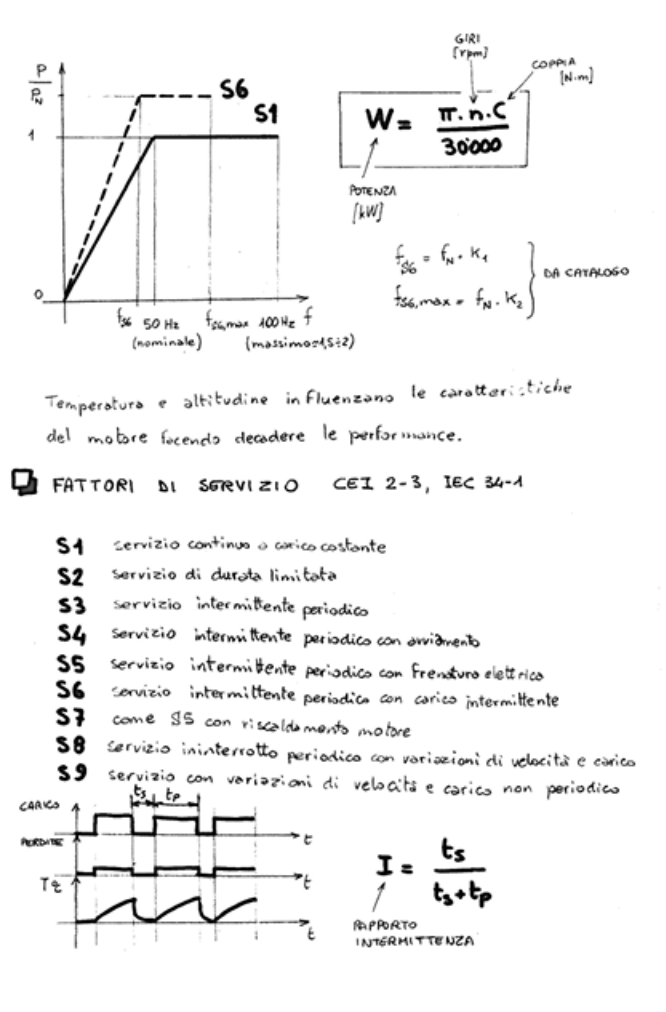 GIRI
[rpm]
COPPIA
[N.m]
P
P_N
S6
S1
W = π.n.C / 30'000
1
POTENZA
[kW]
f_S6 = f_N . K_1
f_S6,max = f_N . K_2
DA CATALOGO
0
f_S6 50 Hz f_S6,max 100 Hz f
(nominale) (massimo=1,5÷2)
Temperatura e altitudine influenzano le caratteristiche
del motore facendo decadere le performance.
FATTORI DI SERVIZIO CEI 2-3, IEC 34-1
S1 servizio continuo a carico costante
S2 servizio di durata limitata
S3 servizio intermittente periodico
S4 servizio intermittente periodico con avviamento
S5 servizio intermittente periodico con frenatura elettrica
S6 servizio intermittente periodico con carico intermittente
S7 come S5 con riscaldamento motore
S8 servizio ininterrotto periodico con variazioni di velocità e carico
S9 servizio con variazioni di velocità e carico non periodico
t_s t_p
CARICO
t
PERDITE
t
t
I = t_s / t_s+t_p
RAPPORTO
INTERMITTENZA